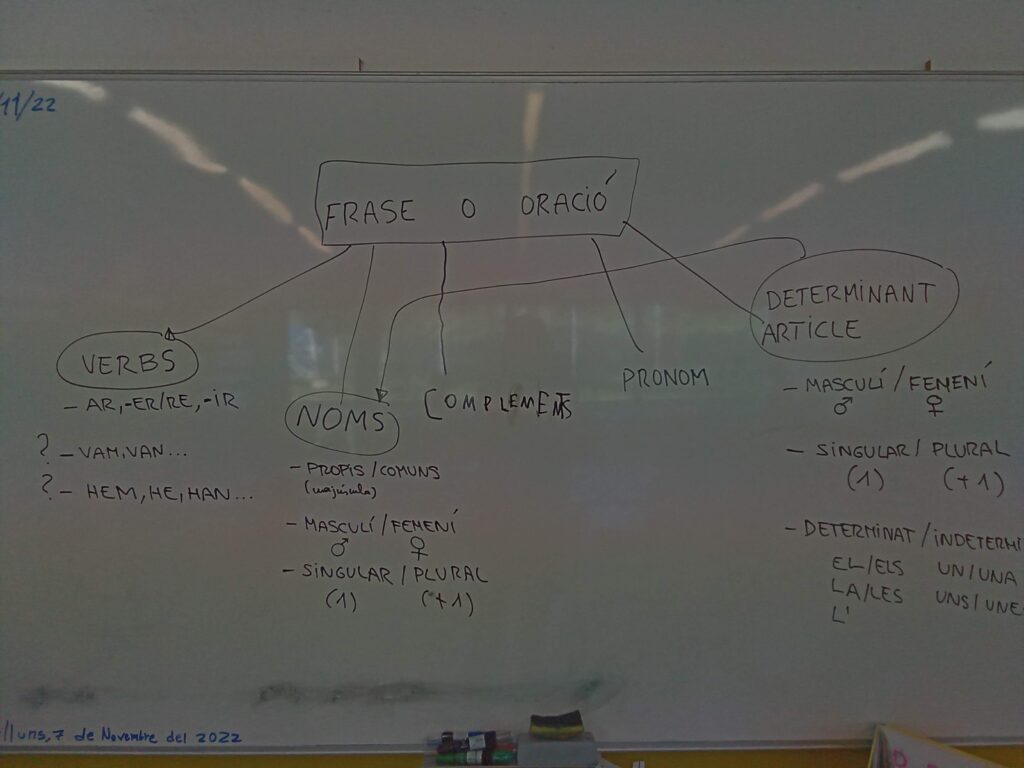 /11/22
FRASE O ORACIÓ
VERBS
- AR, -ER/RE, -IR
? - VAM, VAN...
? - HEM, HE, HAN...
NOMS
- PROPIS / COMUNS
(majúscula)
- MASCULÍ / FEMENÍ
♂ ♀
- SINGULAR / PLURAL
(1) (+1)
COMPLEMENTS
PRONOM
DETERMINANT
ARTICLE
- MASCULÍ / FEMENÍ
♂ ♀
- SINGULAR / PLURAL
(1) (+1)
- DETERMINAT / INDETERMI
EL/ELS UN/UNA
LA/LES UNS/UNE
L'
lluns, 7 de Novembre del 2022